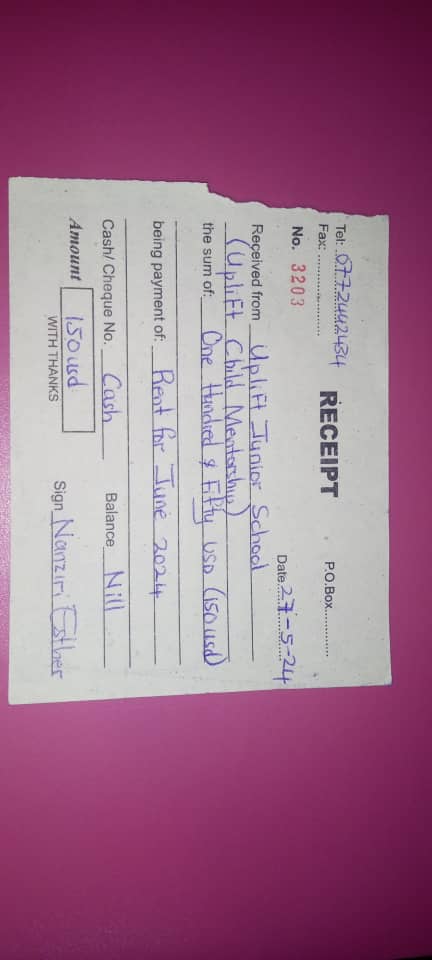 Tel: 0772442434
Fax:
RECEIPT
P.O.Box
No. 3203
Date 27-5-24
Received from Uplift Junior School
(Uplift Child Mentorship)
the sum of: One Hundred & Fifty USD (150usd)
being payment of: Rent for June 2024
Cash/ Cheque No. Cash Balance Nill
Amount 150usd
WITH THANKS
Sign Nanziri Esther